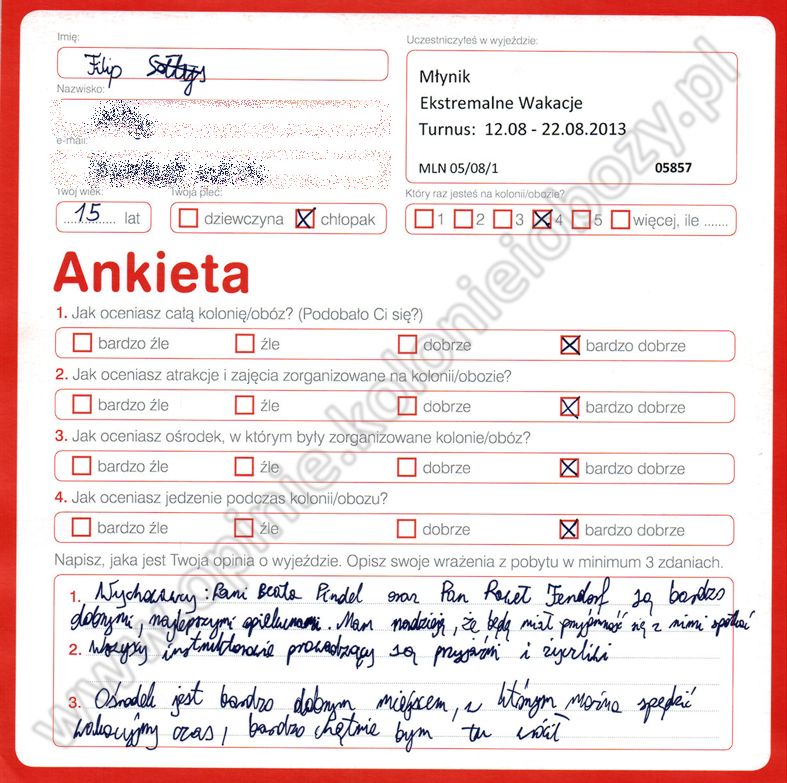 Imię:
Filip
Uczestniczyłeś w wyjeździe:
Młynik
Ekstremalne Wakacje
Turnus: 12.08 - 22.08.2013
MLN 05/08/1 05857
Nazwisko:
e-mail:
Twój wiek:
15 lat
Twoja płeć:
dziewczyna chłopak
Który raz jesteś na kolonii/obozie?
1 2 3 4 5 więcej, ile .......
Ankieta
1. Jak oceniasz całą kolonię/obóz? (Podobało Ci się?)
bardzo źle źle dobrze bardzo dobrze
2. Jak oceniasz atrakcje i zajęcia zorganizowane na kolonii/obozie?
bardzo źle źle dobrze bardzo dobrze
3. Jak oceniasz ośrodek, w którym były zorganizowane kolonie/obóz?
bardzo źle źle dobrze bardzo dobrze
4. Jak oceniasz jedzenie podczas kolonii/obozu?
bardzo źle źle dobrze bardzo dobrze
Napisz, jaka jest Twoja opinia o wyjeździe. Opisz swoje wrażenia z pobytu w minimum 3 zdaniach.
1. Wychowawcy: Pani Beata Pindel oraz Pan są bardzo
dobrymi, najlepszymi opiekunami. Mam nadzieję, że będę miał przyjemność się z nimi spotkać
2. Wszyscy prowadzący są przyjaźni i życzliwi
3. Ośrodek jest bardzo dobrym miejscem, w którym można spędzić
wakacyjny czas, bardzo chętnie bym tu wrócił
www.opinie.kolonieiobozy.pl